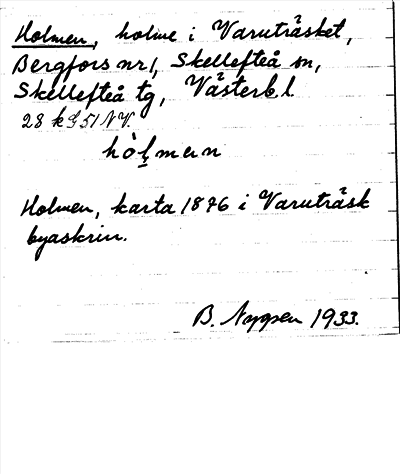 Holmen, holme i Varuträsket,
Bergfors nr 1, Skellefteå sn,
Skellefteå tg, Västerb. l
28 k G 51 NV.
hòl̥man
Holmen, karta 1876 i Varuträsk
byaskrin.
B. 1933.